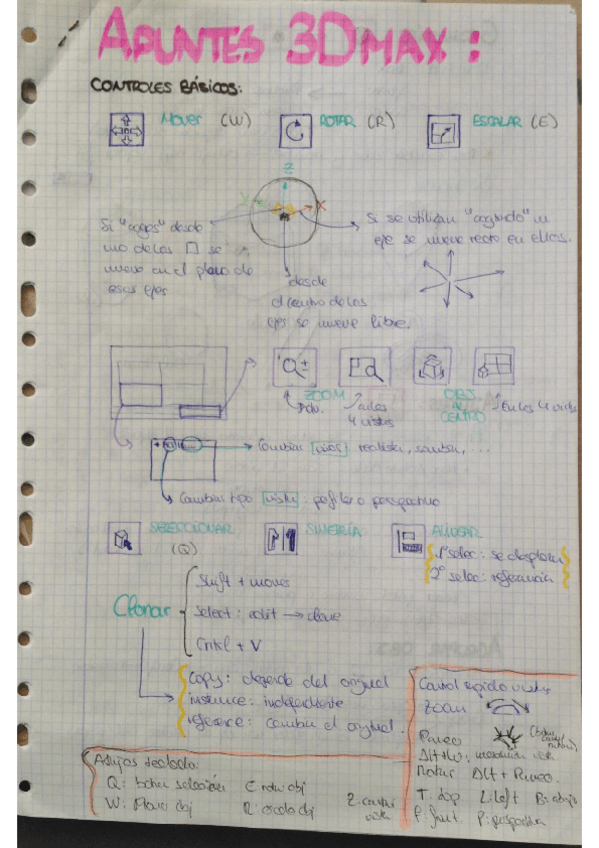 APUNTES 3DMAX:
CONTROLES BÁSICOS:
MOVER (W) ROTAR (R) ESCALAR (E)
Z
Y X
Si "coges" desde
uno de los □ se
mueve en el plano de
esos ejes
Si se utilizan "cogiendo" un
eje se mueve recto en ellos.
desde
el centro de los
ejes se mueve libre.
ZOOM
4 vistas
OBJ
AL
CENTRO
En las 4 vistas
Cambiar [visós] realista, sombra, ...
Cambiar tipo [vista]: perfil o perspectiva
SELECCIONAR
(Q)
SIMETRÍA
ALINEAR
1º selec: se desplaza
2º selec: referencia
Clonar
Shift + moves
select: edit → clone
Cntrl + V
Copy: depende del original
instance: independiente
reference: cambia el original.
Control rápido vistas
Zoom
Paneo
Alt+W: maximizar vista
Rotar Alt + Paneo.
T: top L: left B: abajo
F: front P: perspectiva
Atajos teclado:
Q: botón selección E: rota obj
W: Mover obj R: escala obj Z: centrar
vista